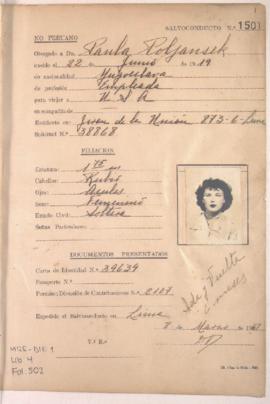 1
SALVOCONDUCTO N.º 1501
NO PERUANO
Otorgado a Dn. Paula Poljansek
nacido el 22 de Junio de 1919
de nacionalidad Yugoeslava
de profesión Empleada
para viajar a U.S.A
en compañía de
Residente en Jiron de la Unión 873-6-Lima
Solicitud N.º 38868
FILIACION
Estatura: 1
Cabellos: Rubio
Ojos: Azules
Sexo: Femenino
Estado Civil: Soltera
Señas Particulares:
DOCUMENTOS PRESENTADOS
Carta de Identidad N.º 39639
Pasaporte N.º
Permiso: División de Contribuciones N.º 2107
Ida y Vuelta
6 meses
Expedido el Salvoconducto en Lima
8 Marzo de 19
V.º B.º
MRE-DIE 1
Lib 4
Fol. 502